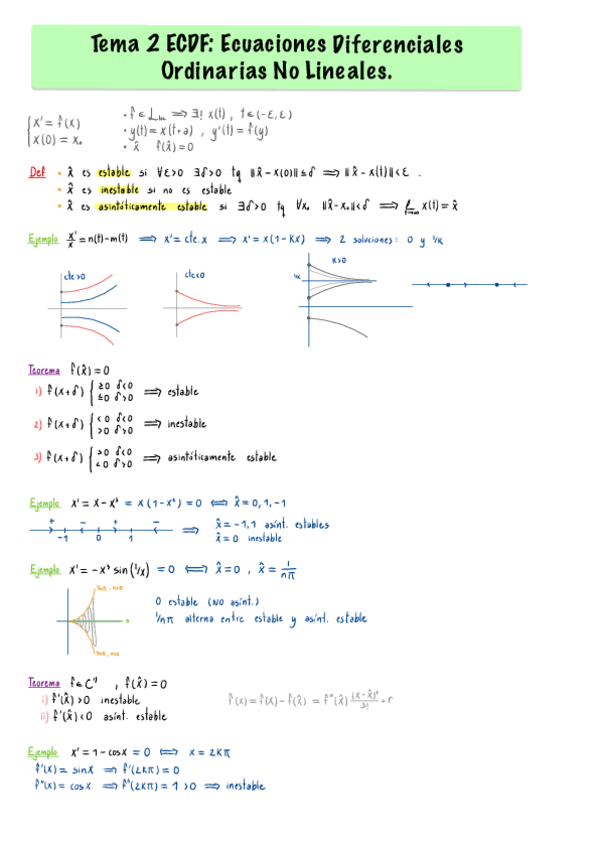 Tema 2 ECDF: Ecuaciones Diferenciales
Ordinarias No Lineales.
{ x' = f(x)
x(0) = x₀
· f ∈ L_loc ⟹ ∃! x(t) , t∈(-ε,ε)
· y(t) = x(t+a) , y'(t) = f(y)
· x̂ f(x̂) = 0
Def • x̂ es estable si ∀ε>0 ∃δ>0 tq ||x̂ - x(0)|| ≤ δ ⟹ ||x̂ - x(t)|| < ε .
• x̂ es inestable si no es estable
• x̂ es asintóticamente estable si ∃δ>0 tq ∀x₀ ||x̂-x₀|| < δ ⟹ lim t→∞ x(t) = x̂
Ejemplo x'/x = n(t)-m(t) ⟹ x' = cte.x ⟹ x' = x(1-Kx) ⟹ 2 soluciones: 0 y 1/K
cte>0
cte<0
K>0
1/K
Teorema f(x̂) = 0
i) f(x+δ) { ≥0 δ<0
≤0 δ>0 ⟹ estable
2) f(x+δ) { <0 δ<0
>0 δ>0 ⟹ inestable
3) f(x+δ) { >0 δ<0
<0 δ>0 ⟹ asintóticamente estable
Ejemplo x' = x - x³ = x(1-x²) = 0 ⟺ x̂ = 0, 1, -1
+ - + -
-1 0 1
⟹ x̂ = -1,1 asínt. estables
x̂ = 0 inestable
Ejemplo x' = -x³ sin(1/x) = 0 ⟺ x̂ = 0 , x̂ = 1/nπ
0 estable (NO asínt.)
1/nπ alterna entre estable y asínt. estable
Teorema f ∈ C¹ , f(x̂) = 0
i) f'(x̂) > 0 inestable
ii) f'(x̂) < 0 asínt. estable
f(x) = f(x) - f(x̂) = f'''(x̂) (x-x̂)³/3! + r
Ejemplo x' = 1 - cosx = 0 ⟺ x = 2Kπ
f'(x) = sinx ⟹ f'(2Kπ) = 0
f''(x) = cosx ⟹ f''(2Kπ) = 1 > 0 ⟹ inestable